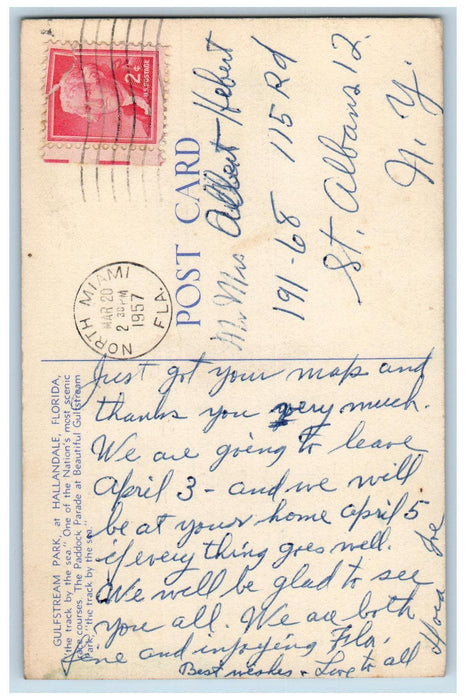 2¢
U.S. POSTAGE
NORTH MIAMI
MAR 20
2 30 PM
1957
FLA.
POST CARD
Mr Mrs Albert Hebert
191-68 115 Rd
St. Albans 12.
N. Y.
GULFSTREAM PARK, at HALLANDALE, FLORIDA,
"the track by the sea." One of the Nation's most scenic
race courses. The Paddock Parade at Beautiful Gulfstream
Park, "the track by the sea."
Just got your map and
thanks you very much.
We are going to leave
April 3 - and we will
be at your home April 5
if every thing goes well.
We will be glad to see
you all. We are both
fine and injoying Fla.
Best wishes + Love to all
Joe